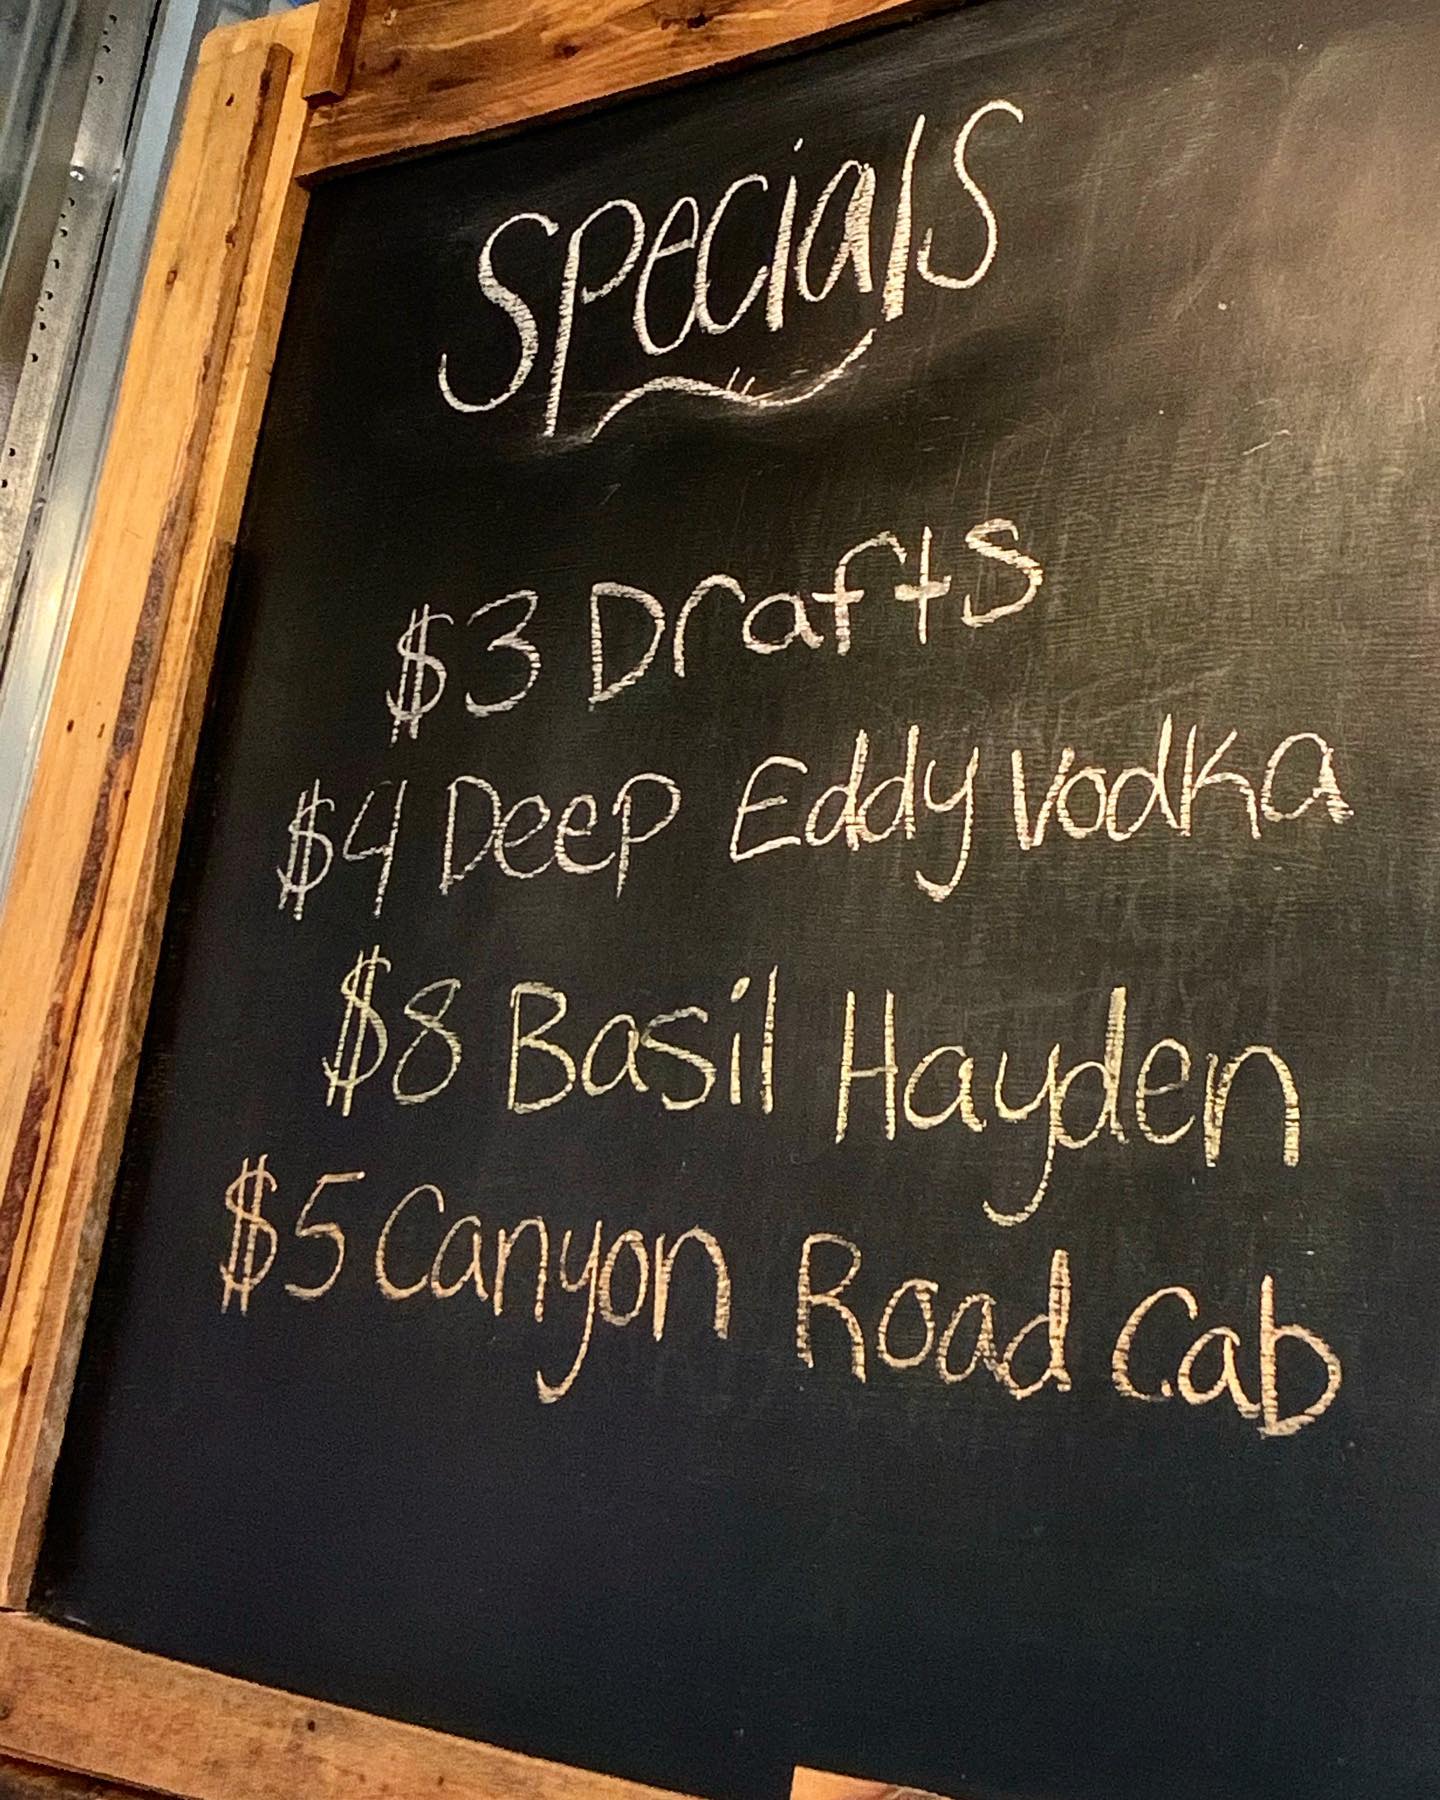 Specials
$3 Drafts
$4 Deep Eddy Vodka
$8 Basil Hayden
$5 Canyon Road Cab